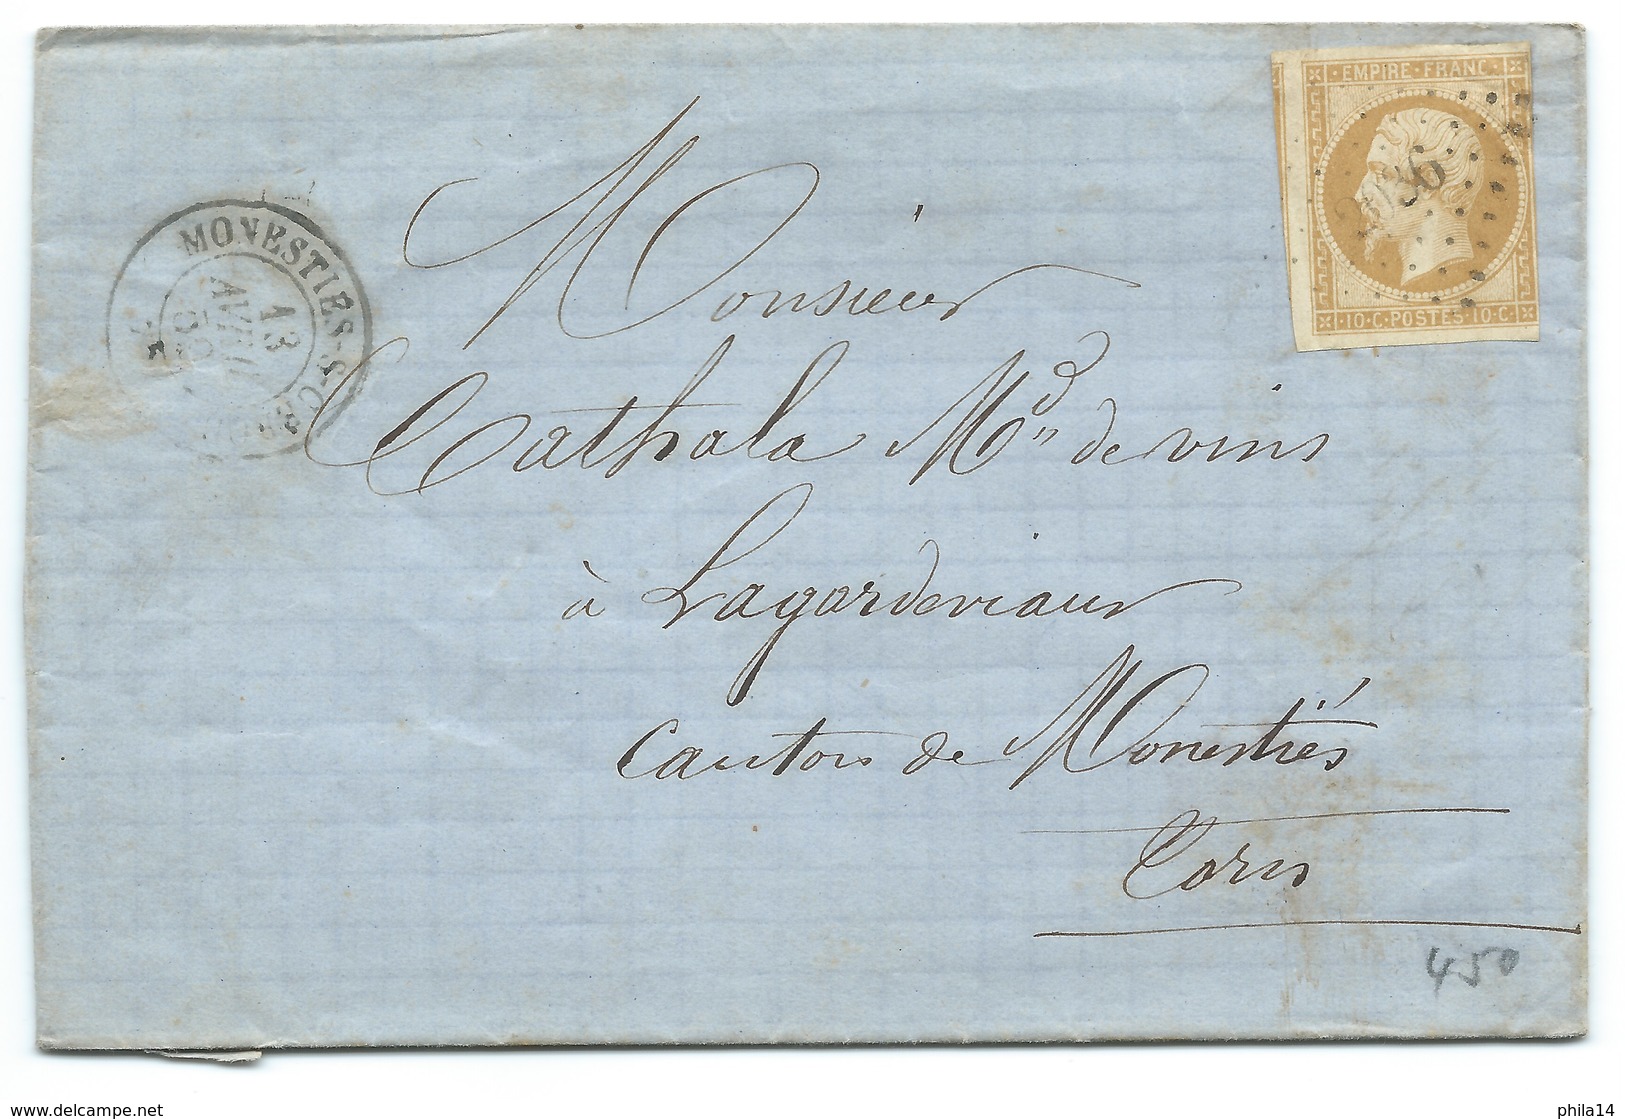 EMPIRE · FRANC ·
2036
10 · C · POSTES 10 · C ·
MONESTIÉS-S-CÉROU
13
AVRIL
Monsieur
Cathala Md de vins
à Lagardeviaur
Canton de Monestiés
Tarn
450
www.delcampe.net
phila14